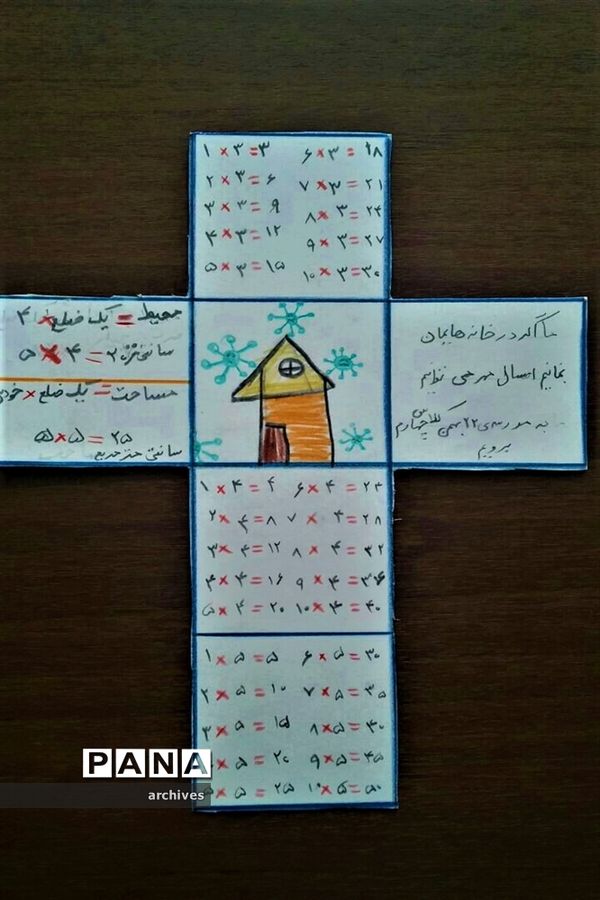 ۱ × ۳ = ۳
۲ × ۳ = ۶
۳ × ۳ = ۹
۴ × ۳ = ۱۲
۵ × ۳ = ۱۵
۶ × ۳ = ۱۸
۷ × ۳ = ۲۱
۸ × ۳ = ۲۴
۹ × ۳ = ۲۷
۱۰ × ۳ = ۳۰
محیط = یک ضلع × ۴
۵ × ۴ = ۲۰ سانتی متر
مساحت = یک ضلع × خودش
۵ × ۵ = ۲۵
سانتی متر مربع
ما اگر در خانه هایمان
بمانیم امسال مهر می توانیم
به مدرسه‌ی ۲۲ بهمن کلاس چهارم
برویم
۱ × ۴ = ۴
۲ × ۴ = ۸
۳ × ۴ = ۱۲
۴ × ۴ = ۱۶
۵ × ۴ = ۲۰
۶ × ۴ = ۲۴
۷ × ۴ = ۲۸
۸ × ۴ = ۳۲
۹ × ۴ = ۳۶
۱۰ × ۴ = ۴۰
۱ × ۵ = ۵
۲ × ۵ = ۱۰
۳ × ۵ = ۱۵
× ۵ = ۲۰
۵ × ۵ = ۲۵
۶ × ۵ = ۳۰
۷ × ۵ = ۳۵
۸ × ۵ = ۴۰
۹ × ۵ = ۴۵
۱۰ × ۵ = ۵۰
PANA
archives